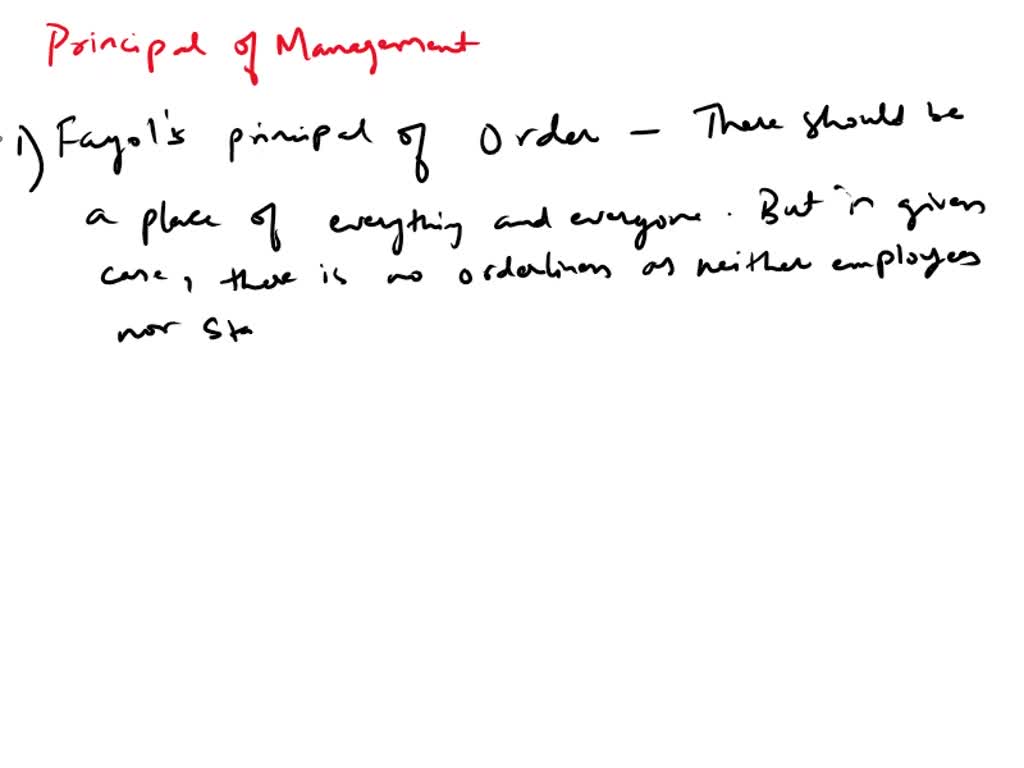 Principal of Management
1) Fayol's principal of Order - There should be
a place of everything and everyone. But in given
case, there is no orderliness as neither employees
nor sta